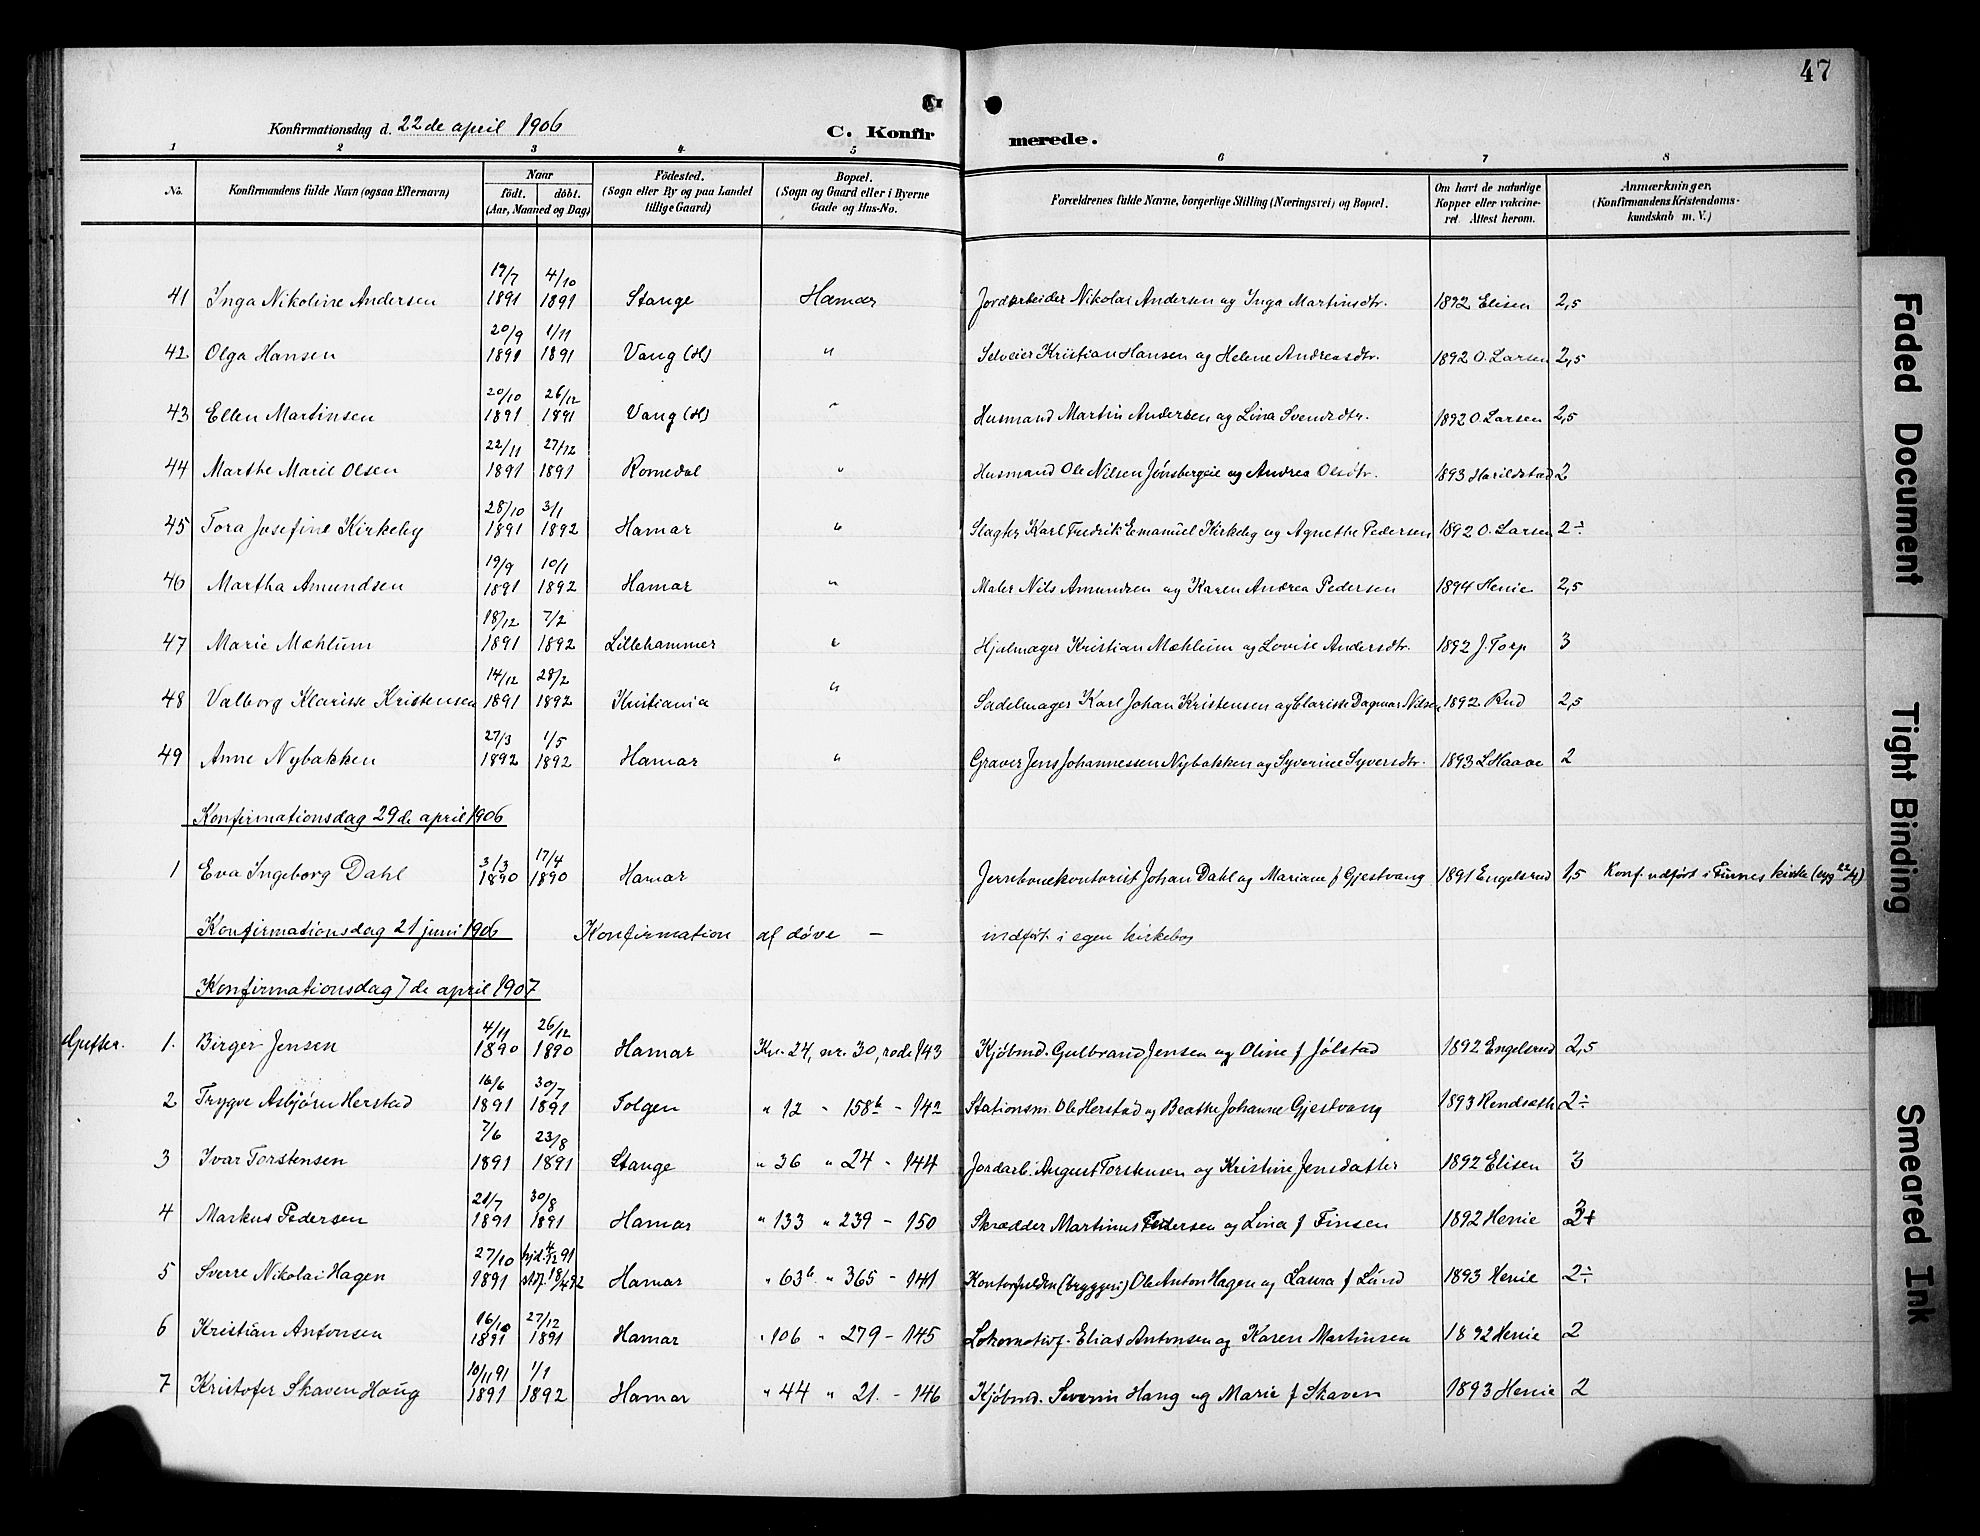 47
Konfirmationsdag d. 22de april 1906
C. Konfirmerede.
1 2 3 4 5 6 7 8
No. Konfirmandens fulde Navn (ogsaa Efternavn) Naar født. døbt. (Aar, Maaned og Dag) Fødested. (Sogn eller By og paa Landet tillige Gaard) Bopæl. (Sogn og Gaard eller i Byerne Gade og Hus-No. Forældrenes fulde Navne, borgerlige Stilling (Næringsvei) og Bopæl. Om havt de naturlige Kopper eller vakcineret Attest herom. Anmærkninger. (Konfirmandens Kristendomskundskab m. V.)
41 Inga Nikoline Andersen 19/7 1891 4/10 1891 Stange Hamar Jordarbeider Nikolai Andersen og Inga Martinsdtr. 1892 Elisen 2,5
42 Olga Hansen 20/9 1891 1/11 1891 Vang (H) " Selveier Kristian Hansen og Helene Andreasdtr. 1892 O. Larsen 2,5
43 Ellen Martinsen 20/10 1891 26/12 1891 Vang (H) " Husmand Martin Andersen og Lina Svendsdtr. 1892 O. Larsen 2,5
44 Marthe Marie Olsen 22/11 1891 27/12 1891 Romedal " Husmand Ole Nilsen Jønsbergeie og Andrea Olsdtr. 1893 Harildstad 2
45 Tora Josefine Kirkeby 28/10 1891 3/1 1892 Hamar " Slagter Karl Fredrik Emanuel Kirkeby og Agnethe Pedersen 1892 O. Larsen 2÷
46 Martha Amundsen 19/9 1891 10/1 1892 Hamar " Maler Nils Amundsen og Karen Andrea Pedersen 1894 Henie 2,5
47 Marie Mæhlum 18/12 1891 7/2 1892 Lillehammer " Hjulmager Kristian Mæhlum og Lovise Andersdtr. 1892 J. Torp 3
48 Valborg Klarisse Kristensen 14/12 1891 28/2 1892 Kristiania " Sadelmager Karl Johan Kristensen og Clarisse Dagmar Nilsen 1892 Rud 2,5
49 Anne Nybakken 27/3 1892 1/5 1892 Hamar " Graver Jens Johannessen Nybakken og Syverine Syversdtr. 1893 L Haave 2
Konfirmationsdag 29de april 1906
1 Eva Ingeborg Dahl 3/3 1890 17/4 1890 Hamar Jernbanekontorist Johan Dahl og Mariane f Gjestvang 1891 Engelsrud 1,5 Konf. udført i Furnes kirke 22/4)
Konfirmationsdag 21 juni 1906 Konfirmation af døve — indført i egen kirkebog
Konfirmationsdag 7de april 1907
Gutter. 1. Birger Jensen 4/11 1890 26/12 1890 Hamar Kv. 24, nr. 30, rode 143 Kjøbmd. Gulbrand Jensen og Oline f Jølstad 1892 Engelsrud 2,5
2 Trygve Asbjørn Herstad 16/6 1891 30/7 1891 Tolgen " 12 " 158b - 142 Stationsm. Ole Herstad og Beathe Johanne Gjestvang 1893 2÷
3 Ivar Torstensen 7/6 1891 23/8 1891 Stange " 36 " 24 - 144 Jordarb. August Torstensen og Kristine Jensdatter 1892 Elisen 3
4 Markus Pedersen 21/7 1891 30/8 1891 Hamar " 133 " 239 - 150 Skrædder Martinus Pedersen og Lina f Finsen 1892 Henie
5 Sverre Nikolai Hagen 27/10 1891 hjd. 4/12 91 stdf. 18/4 92 Hamar " 63b " 365 - 141 (bryggeri) Ole Anton Hagen og Laura f Lund 1893 Henie 2÷
6 Kristian Antonsen 16/10 1891 27/12 1891 Hamar " 106 " 279 - 145 Lokomotivf. Elias Antonsen og Karen Martinsen 1892 Henie 2
7 Kristofer Skaven Haug 10/11 91 1891 1/1 1892 Hamar " 44 " 21. - 146 Kjøbmd. Severin Haug og Marie f Skaven 1893 Henie 2
Faded Document
Tight Binding
Smeared Ink